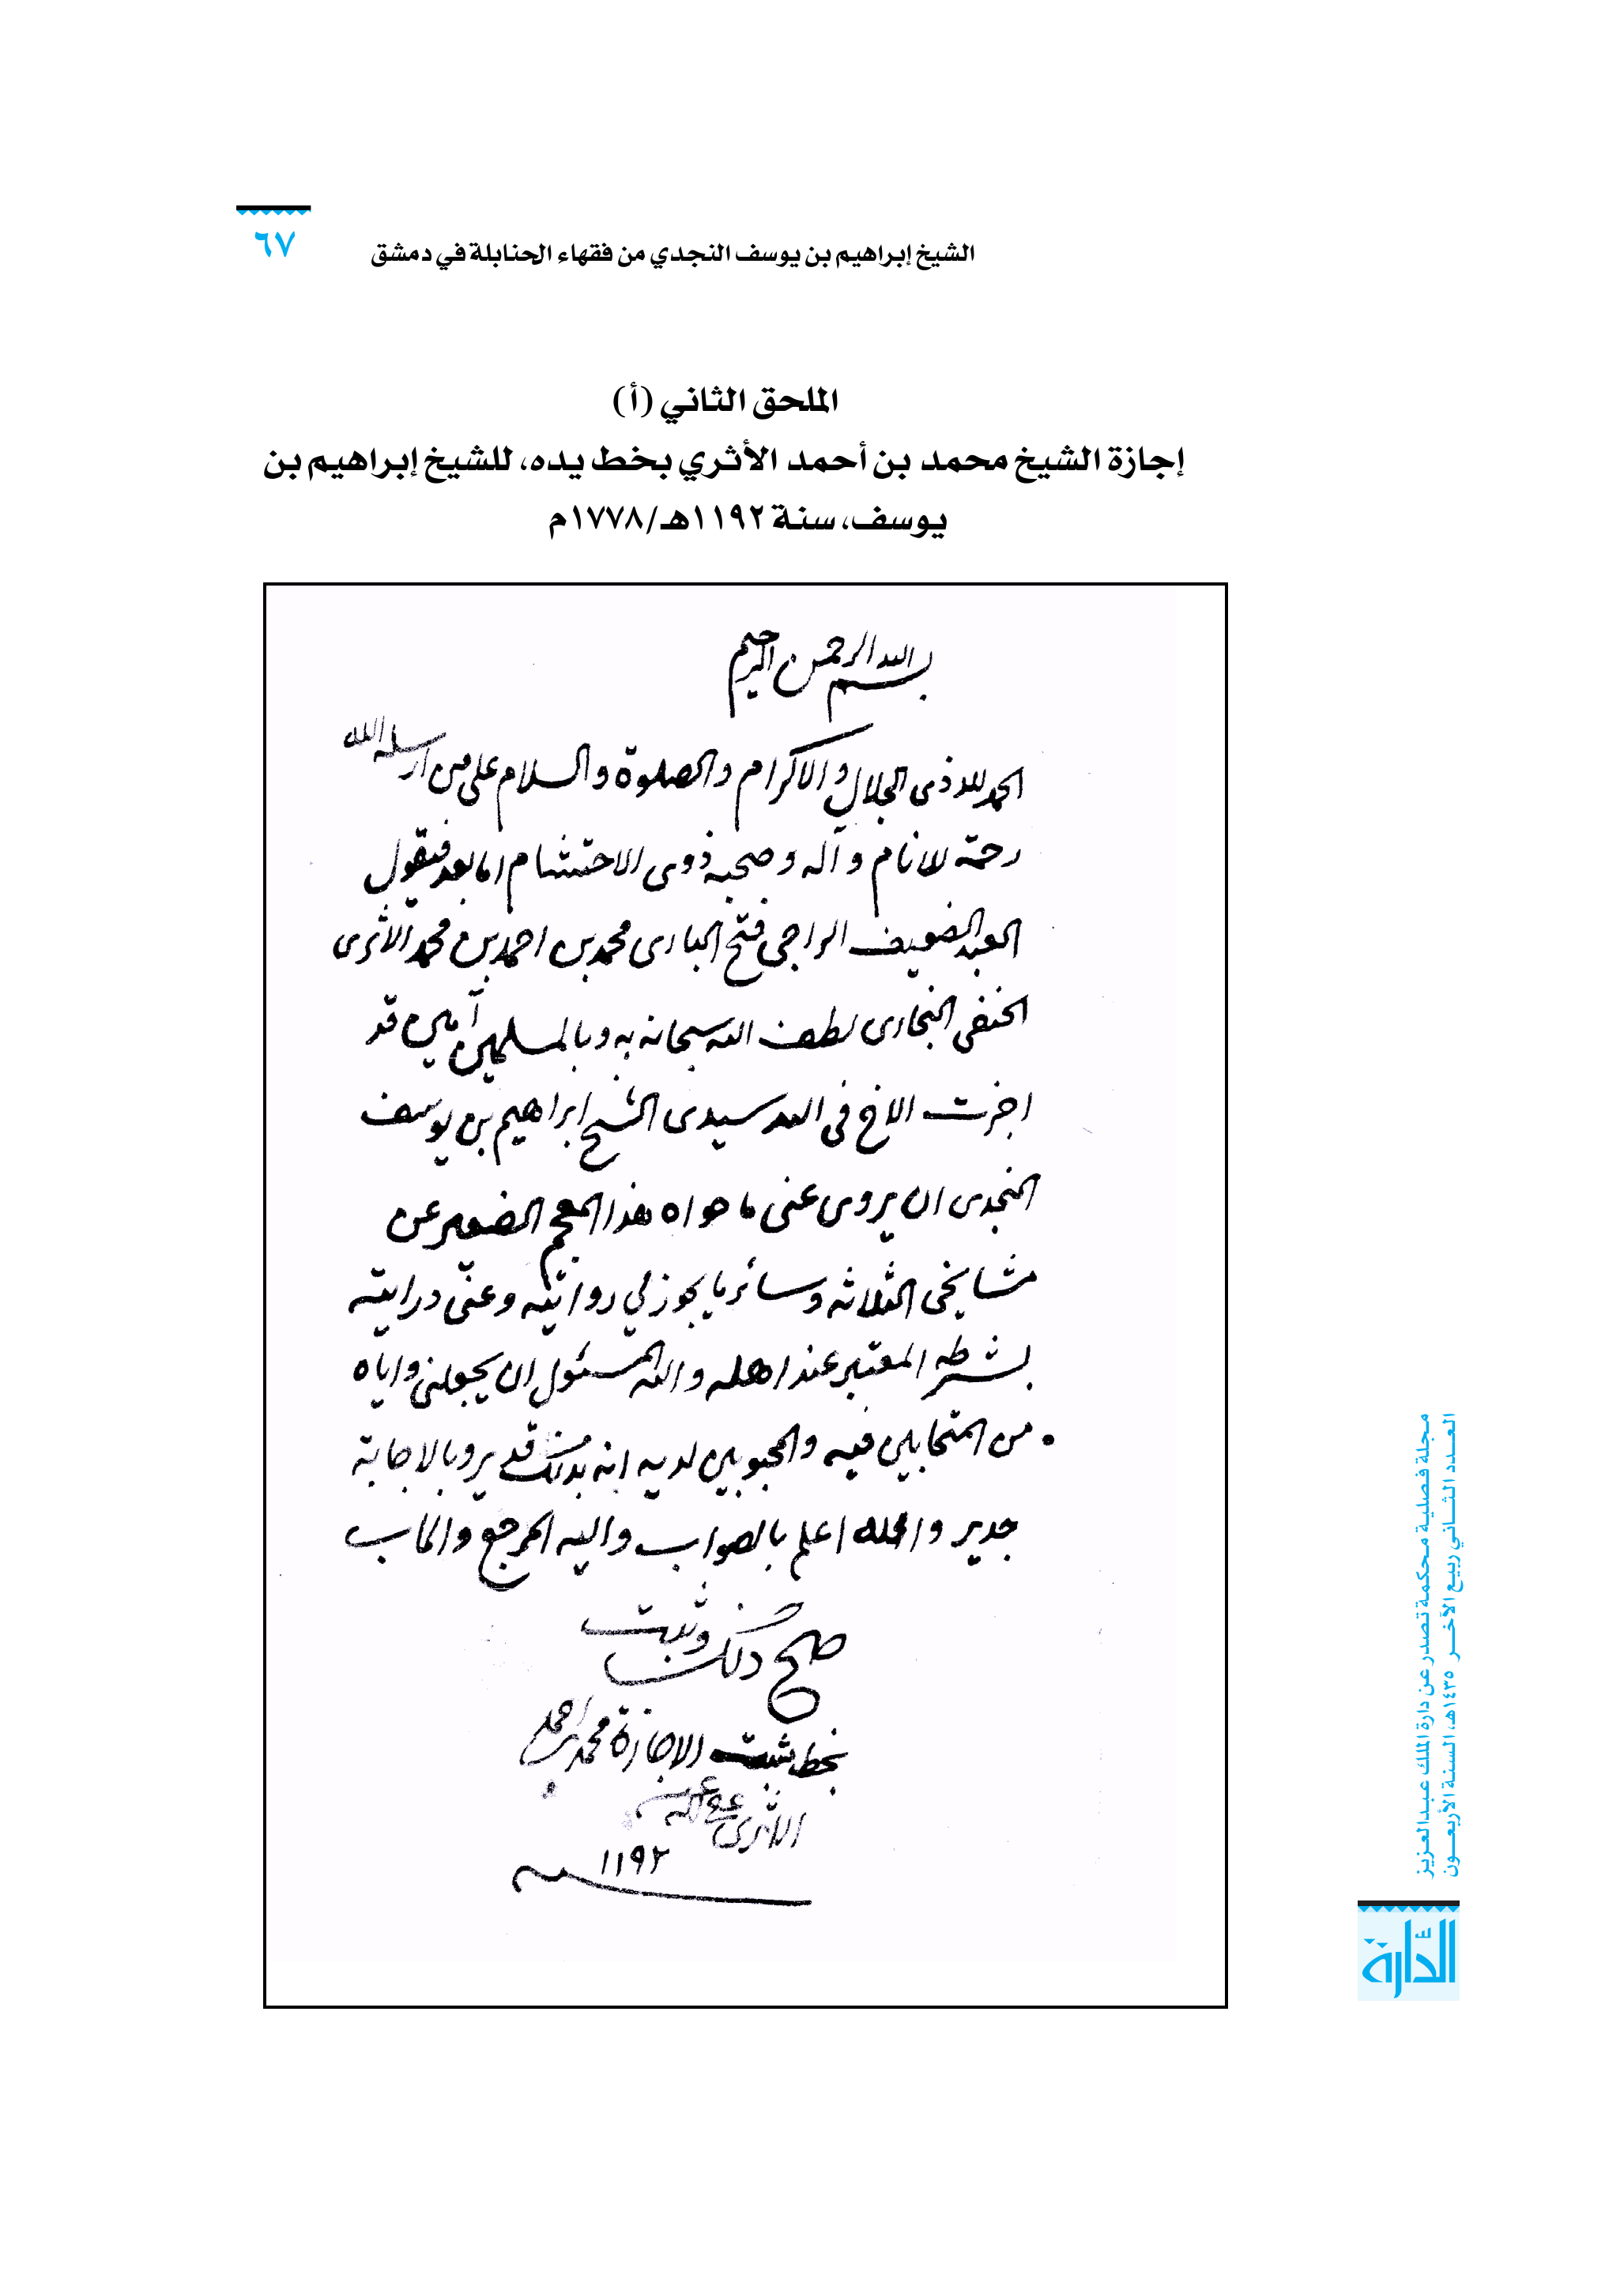 الشيخ إبراهيم بن يوسف النجدي من فقهاء الحنابلة في دمشق
٦٧
الملحق الثاني (أ)
إجازة الشيخ محمد بن أحمد الأثري بخط يده، للشيخ إبراهيم بن
يوسف، سنة ١١٩٢هـ/١٧٧٨م
بسم الله الرحمن الرحيم
الحمد لله ذى الجلال والاكرام والصلوة والسلام على من ارسله الله
رحمة للانام وآله وصحبه ذوى الاحتشام اما بعد فيقول
العبد الضعيف الراجى فتح البارى محمد بن احمد بن محمد الاثرى
الحنفى البخارى لطف الله سبحانه به وبالمسلمين آمين قد
اجزت الاخ فى الله سيدى الشيخ ابراهيم بن يوسف
النجدى ان يروى عنى ما حواه هذا المعجم الصغير عن
مشايخى الثلاثة وسائر ما يجوز لي روايته وعنى درايته
بشرطه المعتبر عند اهله والله المسئول ان يجعلنى واياه
من المتحابين فيه والمحبوبين لديه انه بذلك قدير وبالاجابة
جدير والله اعلم بالصواب واليه المرجع والمآب
صح ذلك وثبت
بخط مثبت الاجازة محمد بن احمد
الاثرى عفى الله عنه
١١٩٢
مجلة فصلية محكمة تصدر عن دارة الملك عبدالعزيز
العدد الثاني ربيع الآخر ١٤٣٥هـ، السنة الأربعون
الدارة